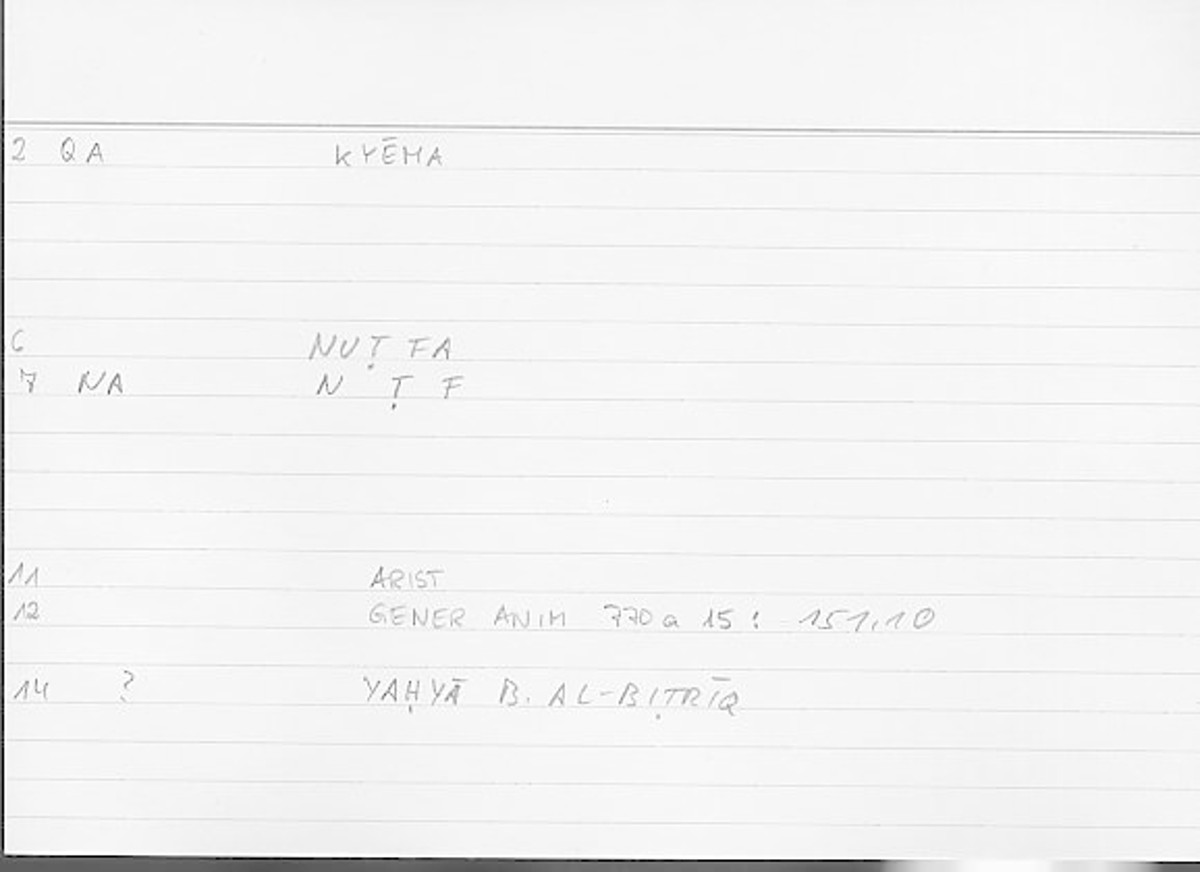 2 QA KYĒMA
6 NUṬFA
7 NA N Ṭ F
11 ARIST
12 GENER ANIM 770a 15: 151,10
14 ? YAḤYĀ B. AL-BIṬRĪQ